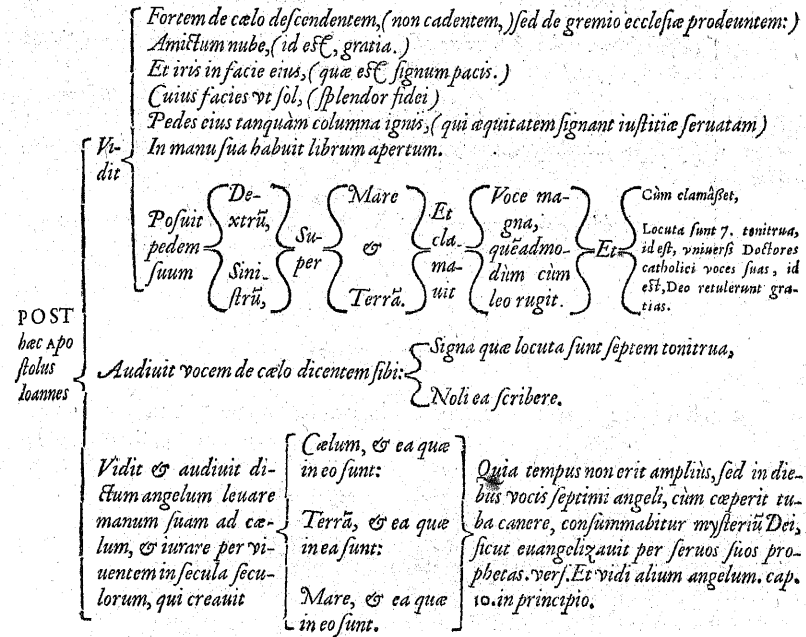 POST
hæc Apo
ſtolus
Ioannes
Vi-
dit
Fortem de cælo deſcendentem, (non cadentem,) ſed de gremio eccleſiæ prodeuntem:)
Amictum nube, (id eſt, gratia.)
Et iris in facie eius, (quæ eſt ſignum pacis.)
Cuius facies vt ſol, (ſplendor fidei)
Pedes eius tanquàm columna ignis, (qui æquitatem ſignant iuſtitiæ ſeruatam)
In manu ſua habuit librum apertum.
Poſuit
pedem
ſuum
De-
xtrũ,
Sini-
ſtrũ,
Su-
per
Mare
&
Terrã.
Et
cla-
ma-
uit
Voce ma-
gna,
quẽadmo-
dùm cùm
leo rugit.
Et
Cùm clamâſſet,
Locuta ſunt 7. tonitrua,
id eſt, vniuerſi Doctores
catholici voces ſuas, id
eſt, Deo retulerunt gra-
tias.
Audiuit vocem de cælo dicentem ſibi:
Signa quæ locuta ſunt ſeptem tonitrua,
Noli ea ſcribere.
Vidit & audiuit di-
ctum angelum leuare
manum ſuam ad cæ-
lum, & iurare per vi-
uentem in ſecula ſecu-
lorum, qui creauit
Cælum, & ea quæ
in eo ſunt:
Terrã, & ea quæ
in ea ſunt:
Mare, & ea quæ
in eo ſunt.
Quia tempus non erit ampliùs, ſed in die-
bus vocis ſeptimi angeli, cùm cœperit tu-
ba canere, conſummabitur myſteriũ Dei,
ſicut euangelizauit per ſeruos ſuos pro-
phetas. verſ. Et vidi alium angelum. cap.
10. in principio.